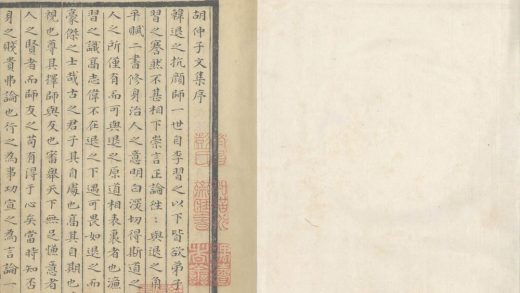 胡仲子文集序
韓退之抗顏師一世自李習之以下皆欲弟子
習之謇然不甚相下崇言正論往〻與退之角
平賦二書修身治人之意明白深切得斯道之
人之所僅有而可與退之原道相表裏者也漁
習之識高志偉不在退之下遇可畏如退之而
豪傑之士哉古之君子其自處也高其自期也
視也尊其擇師與友也審舉天下無足慊意者
人之賢者而師友之苟有得于心矣當時知否
身之賤貴弗論也行之為事功宣之為言論一